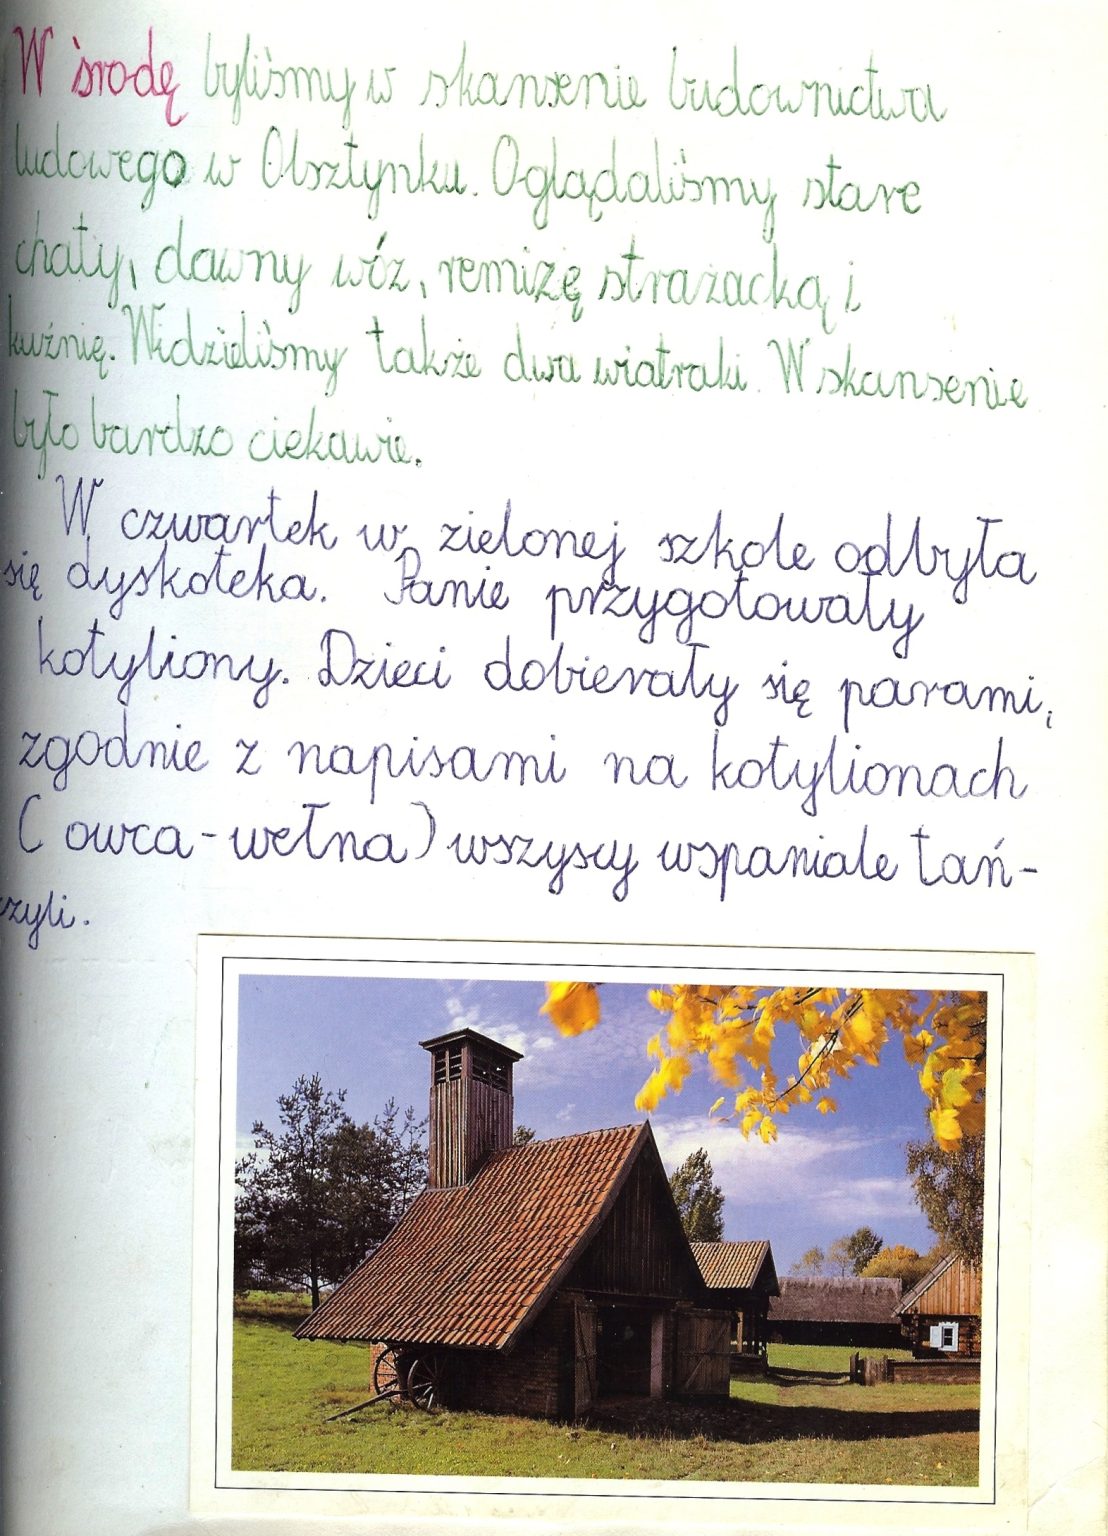 W środę byliśmy w skansenie budownictwa
ludowego w Olsztynku. Oglądaliśmy stare
chaty, dawny wóz, remizę strażacką i
kuźnię. Widzieliśmy także dwa wiatraki. W skansenie
było bardzo ciekawie.
W czwartek w zielonej szkole odbyła
się dyskoteka. Panie przygotowały
kotyliony. Dzieci dobierały się parami,
zgodnie z napisami na kotylionach
(owca-wełna) wszyscy wspaniale tań-
czyli.